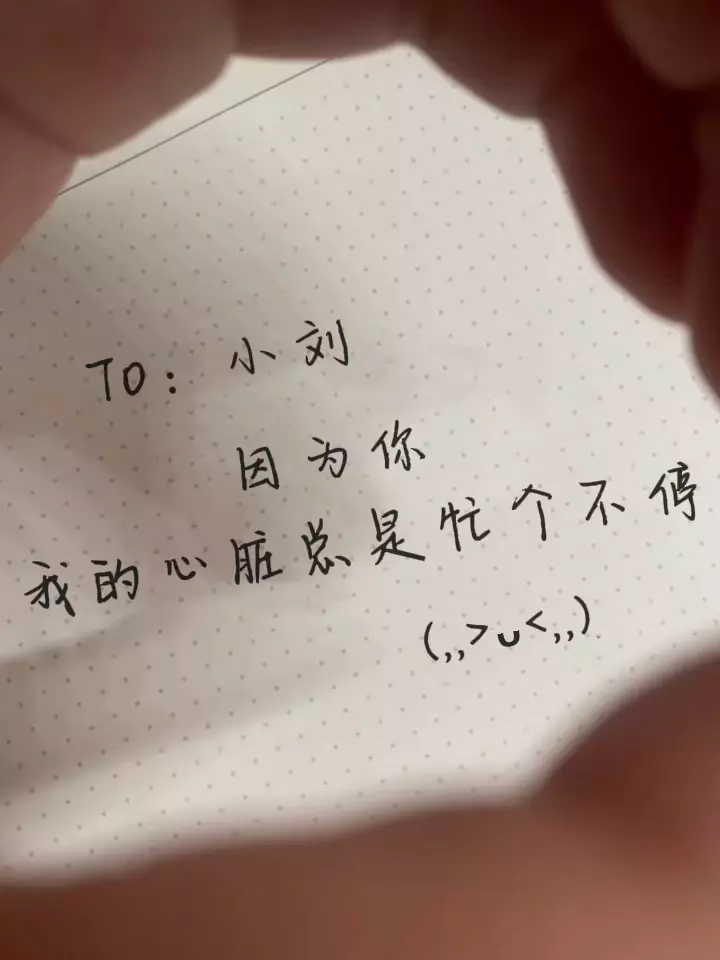 TO: 小刘
因为你
我的心脏总是忙个不停
(,,>ᴗ<,,)